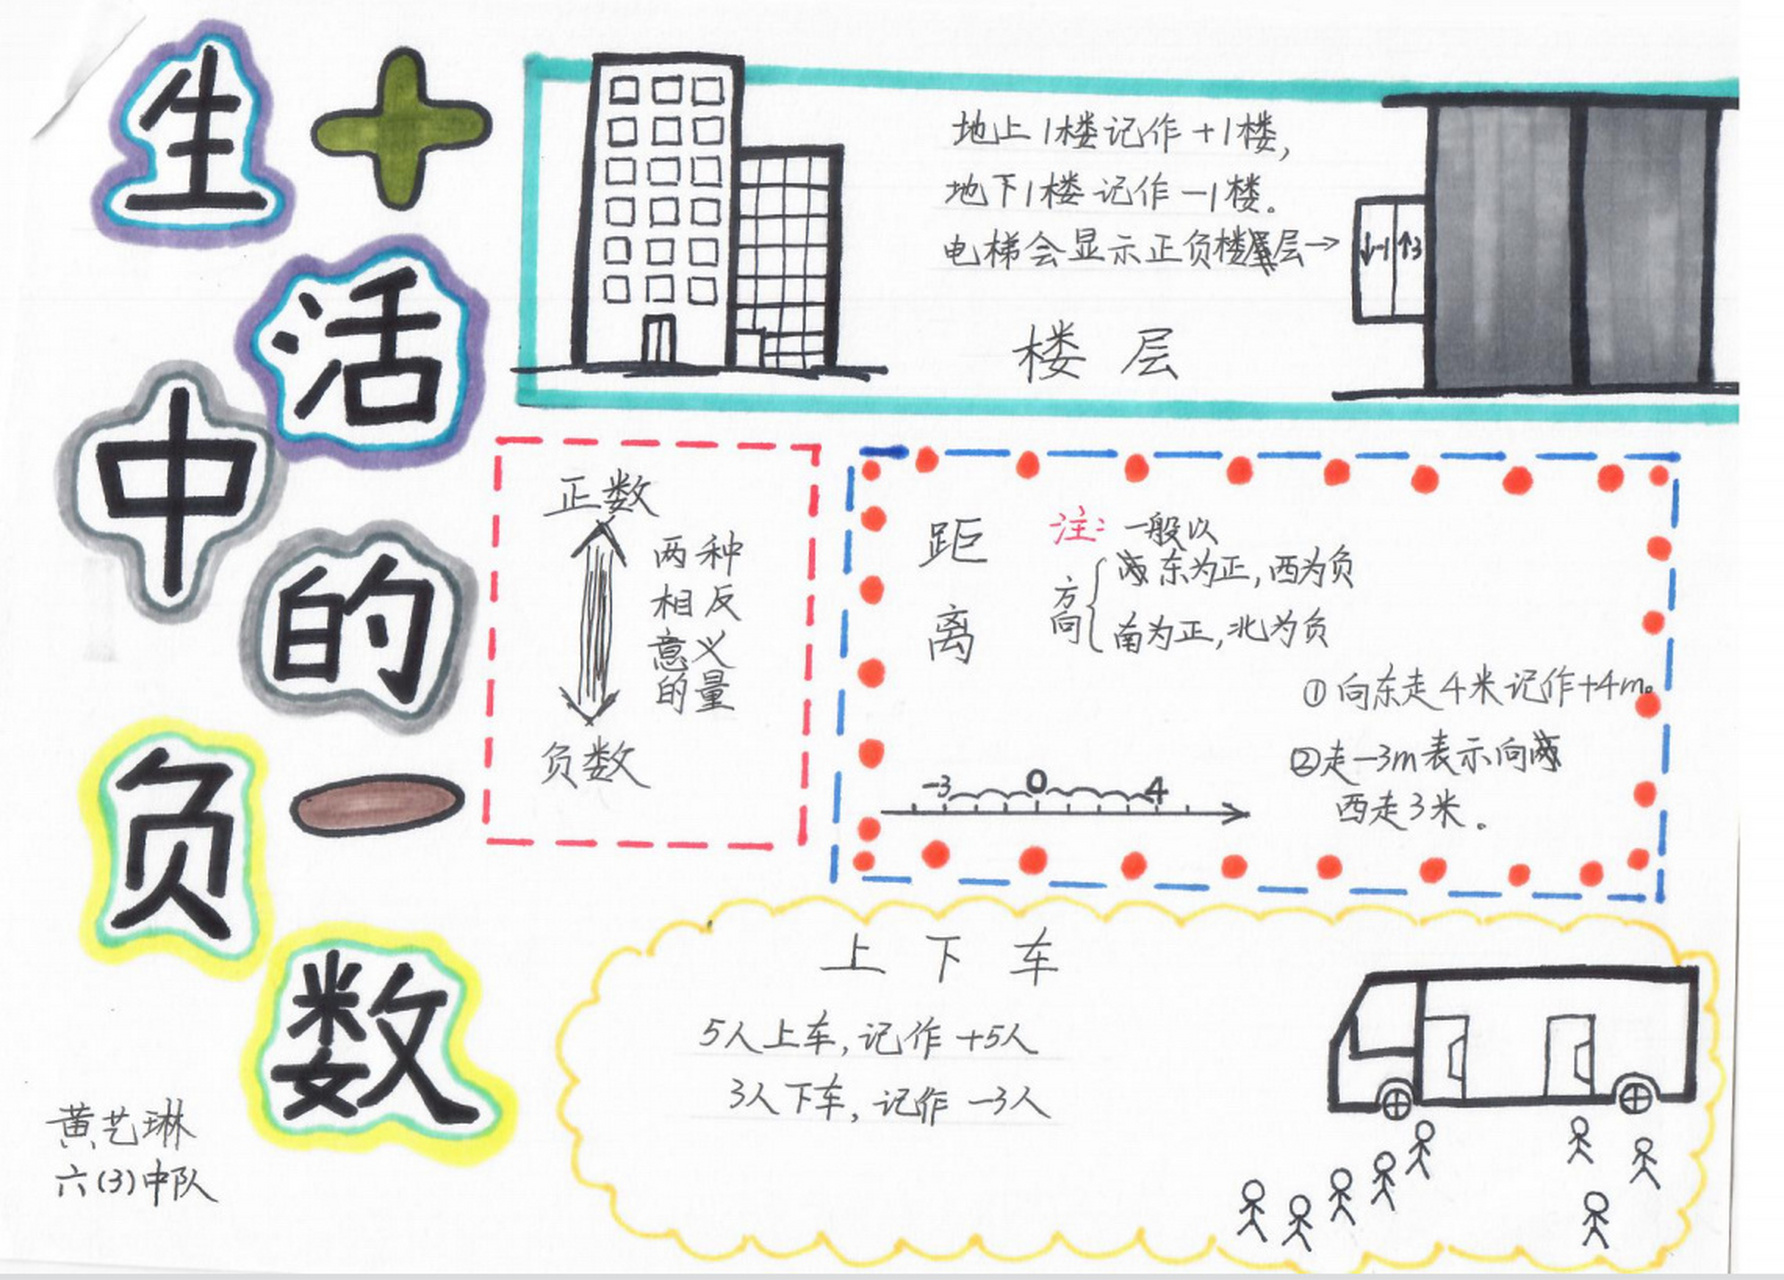 生活中的负数
黄艺琳
六(3)中队
地上1楼记作+1楼,
地下1楼记作-1楼。
电梯会显示正负楼层→
↓-1 ↑3
楼层
正数
两种
相反
意义
的量
负数
距离
注:一般以
方向
东为正,西为负
南为正,北为负
①向东走4米记作+4m。
②走-3m表示向
西走3米。
-3 0 4
上下车
5人上车,记作+5人
3人下车,记作-3人